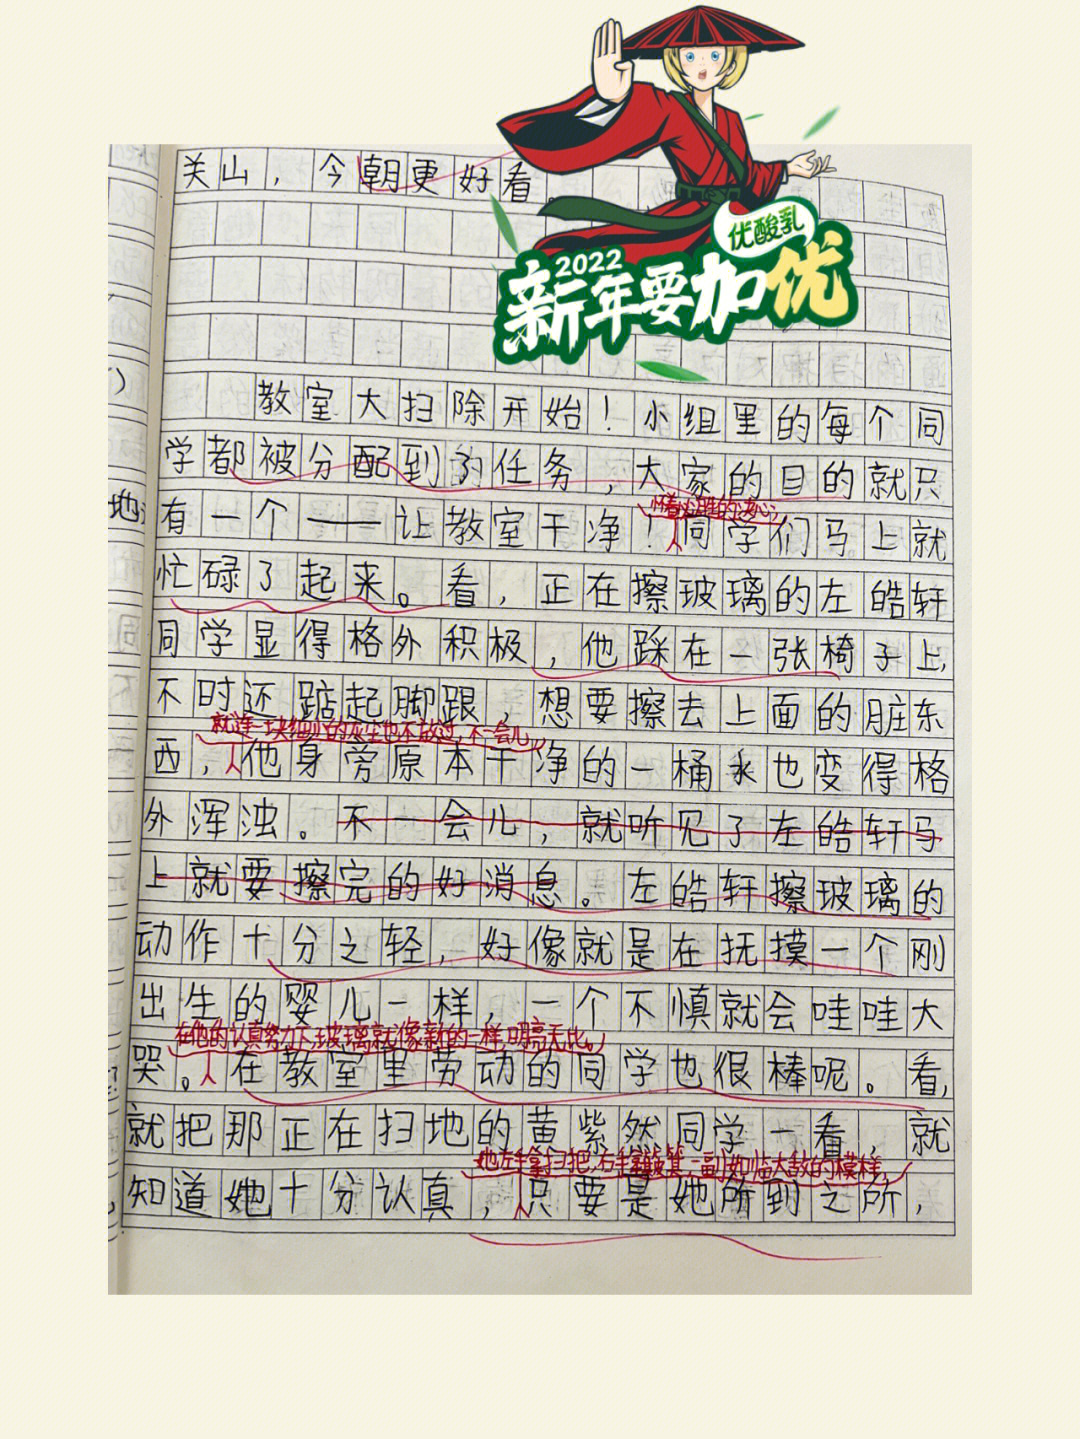 关山，今朝更好看。
优酸乳
2022
新年要加优
教室大扫除开始！小组里的每个同
学都被分配到了任务，大家的目的就只
怀着必胜的决心，
有一个——让教室干净！同学们马上就
忙碌了起来。看，正在擦玻璃的左皓轩
同学显得格外积极，他踩在一张椅子上，
不时还踮起脚跟，想要擦去上面的脏东
就连一块细小的灰尘也不放过，不一会儿，
西，他身旁原本干净的一桶水也变得格
外浑浊。不一会儿，就听见了左皓轩马
上就要擦完的好消息。左皓轩擦玻璃的
动作十分之轻，好像就是在抚摸一个刚
出生的婴儿一样，一个不慎就会哇哇大
在他的认真努力下，玻璃就像新的一样，明亮无比。
哭。在教室里劳动的同学也很棒呢。看，
就把那正在扫地的黄紫然同学一看，就
她左手拿扫把，右手拿簸箕，一副如临大敌的模样，
知道她十分认真，只要是她所到之所，
地